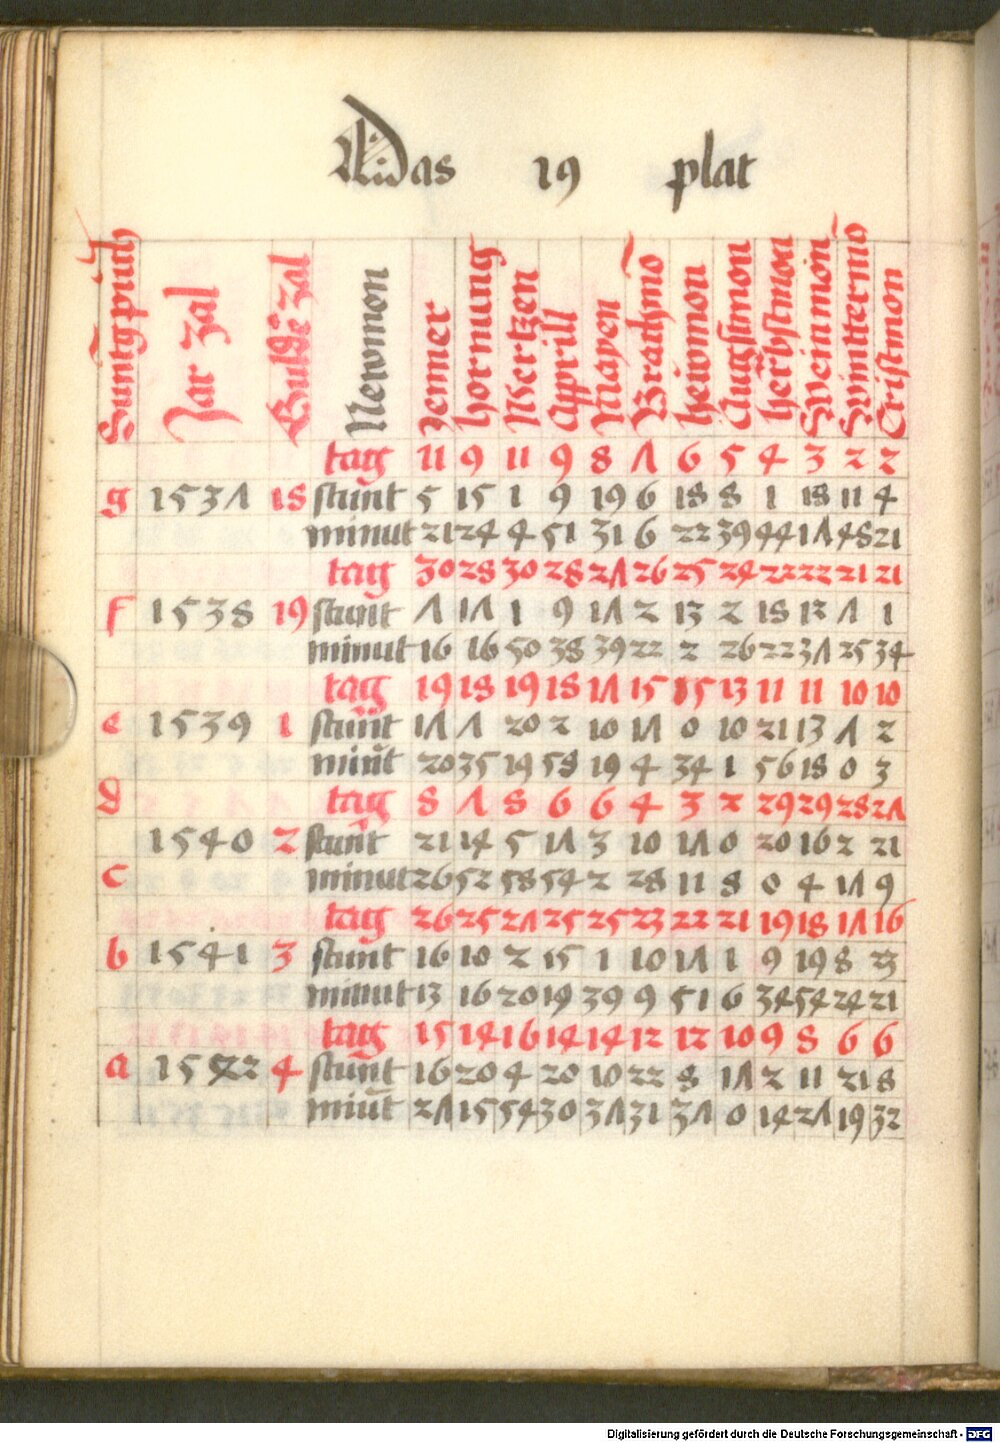 Das 19 plat
Suntgpuch Jar Zal Guldē Zal Newmon Jenner hornung Mertzen Apprill Mayen Brachmō heiwmon Augstmon herbstmon Weinmon Wintermō Cristmon
tag 11 9 11 9 8 7 6 5 4 3 2 2
g 1537 18 stunt 5 15 1 9 19 6 18 8 1 18 11 4
minut 21 24 4 51 31 6 22 39 44 17 48 21
tag 30 28 30 28 27 26 25 24 22 22 21 21
f 1538 19 stunt 7 17 1 9 17 2 13 2 18 12 7 1
minut 16 16 50 38 39 22 2 26 22 37 25 34
tag 19 18 19 18 17 15 15 13 11 11 10 10
e 1539 1 stunt 17 7 20 2 10 17 0 10 21 13 7 2
minūt 20 35 19 58 19 4 34 1 56 18 0 3
d tag 8 7 8 6 6 4 3 2 29 29 28 27
1540 2 stunt 21 14 5 17 3 10 17 0 20 16 2 21
c minut 26 52 58 54 2 28 11 8 0 4 17 9
tag 26 25 27 25 25 23 22 21 19 18 17 16
b 1541 3 stunt 16 10 2 15 1 10 17 1 9 19 8 23
minut 13 16 20 19 39 9 51 6 34 54 24 21
tag 15 14 16 14 14 12 12 10 9 8 6 6
a 1522 4 stunt 16 20 4 20 10 22 8 17 2 11 21 8
miūt 27 15 54 30 37 31 37 0 14 27 19 32
Digitalisierung gefördert durch die Deutsche Forschungsgemeinschaft - DFG